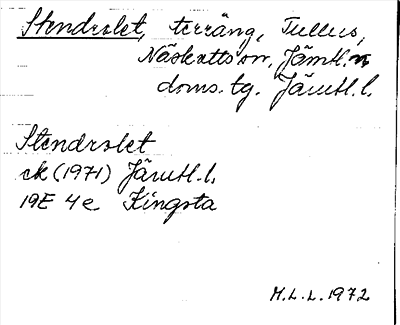 Stendrolet, terräng, Tullus,
Näskotts sn, Jämtl.n
doms. tg. Jämtl. l.
Stendrolet
ek (1971) Jämtl. l.
19E 4e Kingsta
M.L.L. 1972